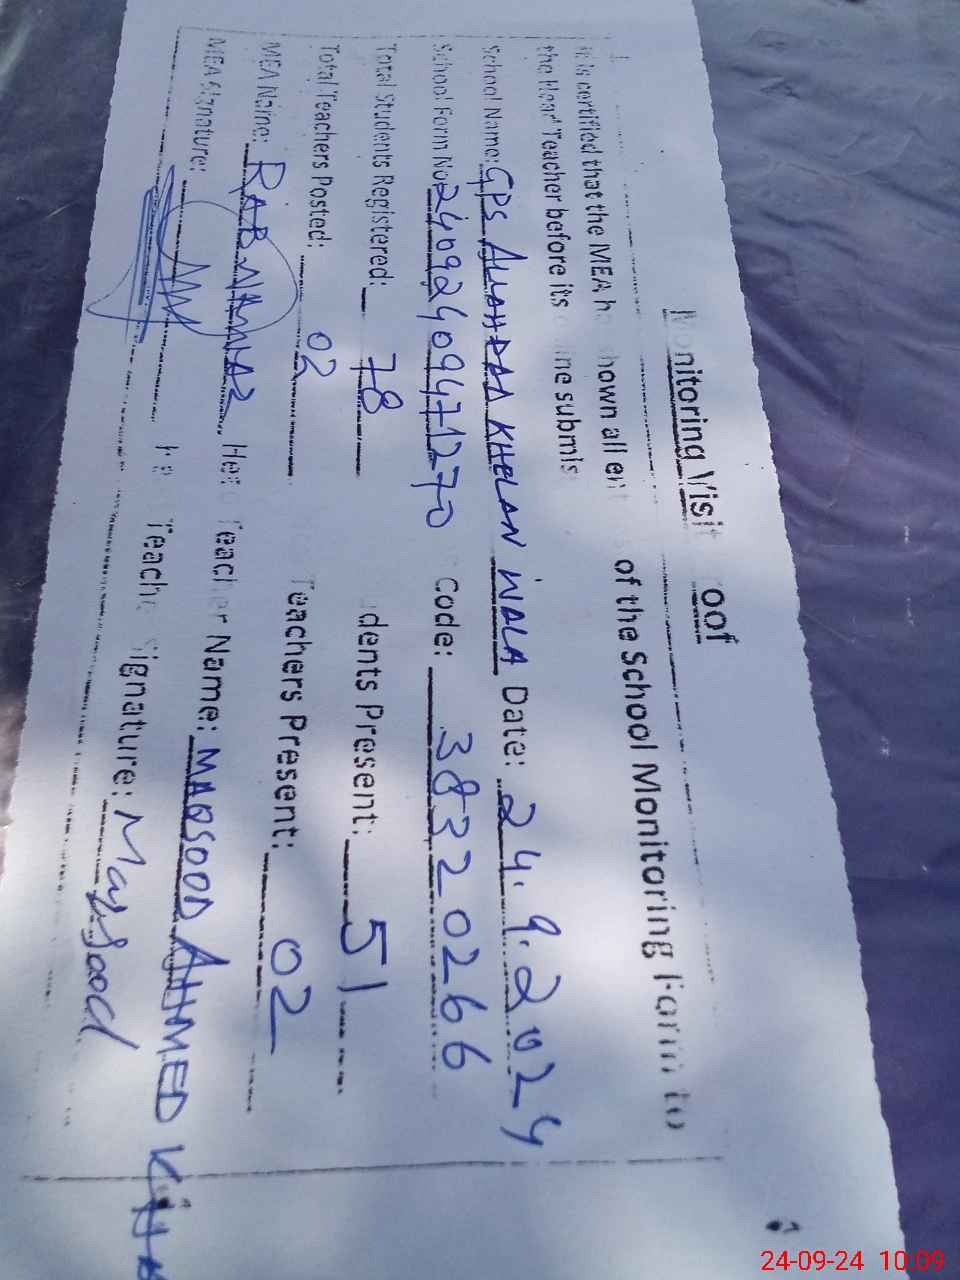 Monitoring Visit Proof
It is certified that the MEA h shown all ent of the School Monitoring Form to
the Head Teacher before its line submis
School Name: GPS ALLAHDAD KHELAN WALA Date: 24.9.2024
School Form No 24092409471270 code: 38320266
Total Students Registered: 78 dents Present: 51
Total Teachers Posted: 02 Teachers Present: 02
MEA Name: RAB NAWAZ Head Teacher Name: MAQSOOD AHMED KHA
MEA Signature: Teache Signature: Maqsood
24-09-24 10:09